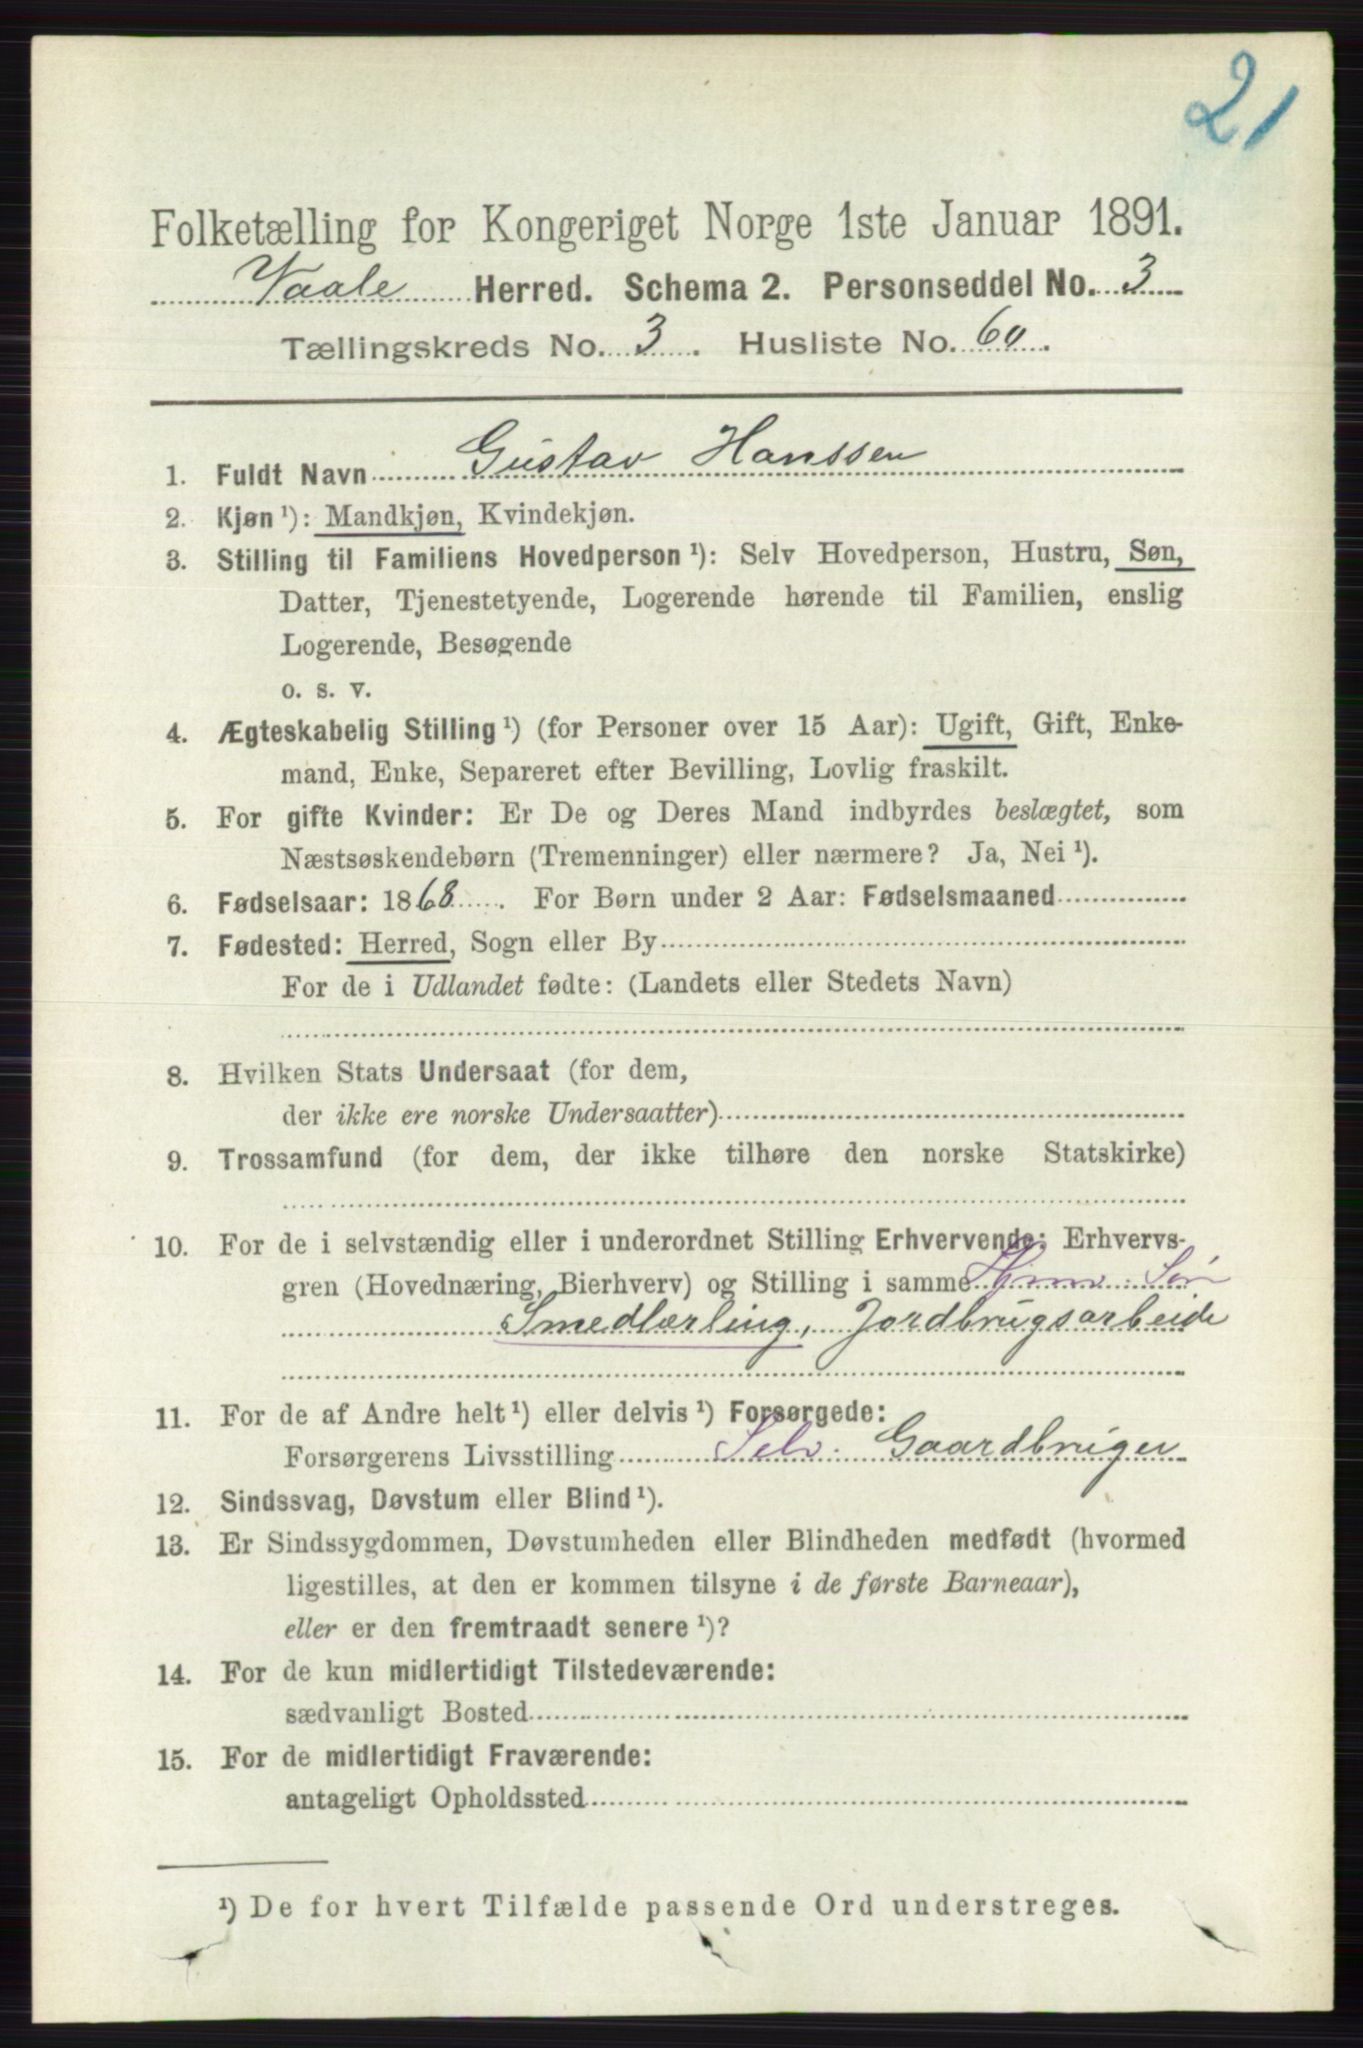 21
Folketælling for Kongeriget Norge 1ste Januar 1891.
Vaale Herred. Schema 2. Personseddel No. 3
Tællingskreds No. 3. Husliste No. 60.
1. Fuldt Navn Gustav Hanssen
2. Kjøn¹): Mandkjøn, Kvindekjøn.
3. Stilling til Familiens Hovedperson¹): Selv Hovedperson, Hustru, Søn,
Datter, Tjenestetyende, Logerende hørende til Familien, enslig
Logerende, Besøgende
o. s. v.
4. Ægteskabelig Stilling¹) (for Personer over 15 Aar): Ugift, Gift, Enke-
mand, Enke, Separeret efter Bevilling, Lovlig fraskilt.
5. For gifte Kvinder: Er De og Deres Mand indbyrdes beslægtet, som
Næstsøskendebørn (Tremenninger) eller nærmere? Ja, Nei¹).
6. Fødselsaar: 1868. For Børn under 2 Aar: Fødselsmaaned
7. Fødested: Herred, Sogn eller By
For de i Udlandet fødte: (Landets eller Stedets Navn)
8. Hvilken Stats Undersaat (for dem,
der ikke ere norske Undersaatter)
9. Trossamfund (for dem, der ikke tilhøre den norske Statskirke)
10. For de i selvstændig eller i underordnet Stilling Erhvervende: Erhvervs-
gren (Hovednæring, Bierhverv) og Stilling i samme
Smedlærling, Jordbrugsarbeide
11. For de af Andre helt¹) eller delvis¹) Forsørgede:
Forsørgerens Livsstilling Selv. Gaardbruger
12. Sindssvag, Døvstum eller Blind¹).
13. Er Sindssygdommen, Døvstumheden eller Blindheden medfødt (hvormed
ligestilles, at den er kommen tilsyne i de første Barneaar),
eller er den fremtraadt senere¹)?
14. For de kun midlertidigt Tilstedeværende:
sædvanligt Bosted
15. For de midlertidigt Fraværende:
antageligt Opholdssted
¹) De for hvert Tilfælde passende Ord understreges.